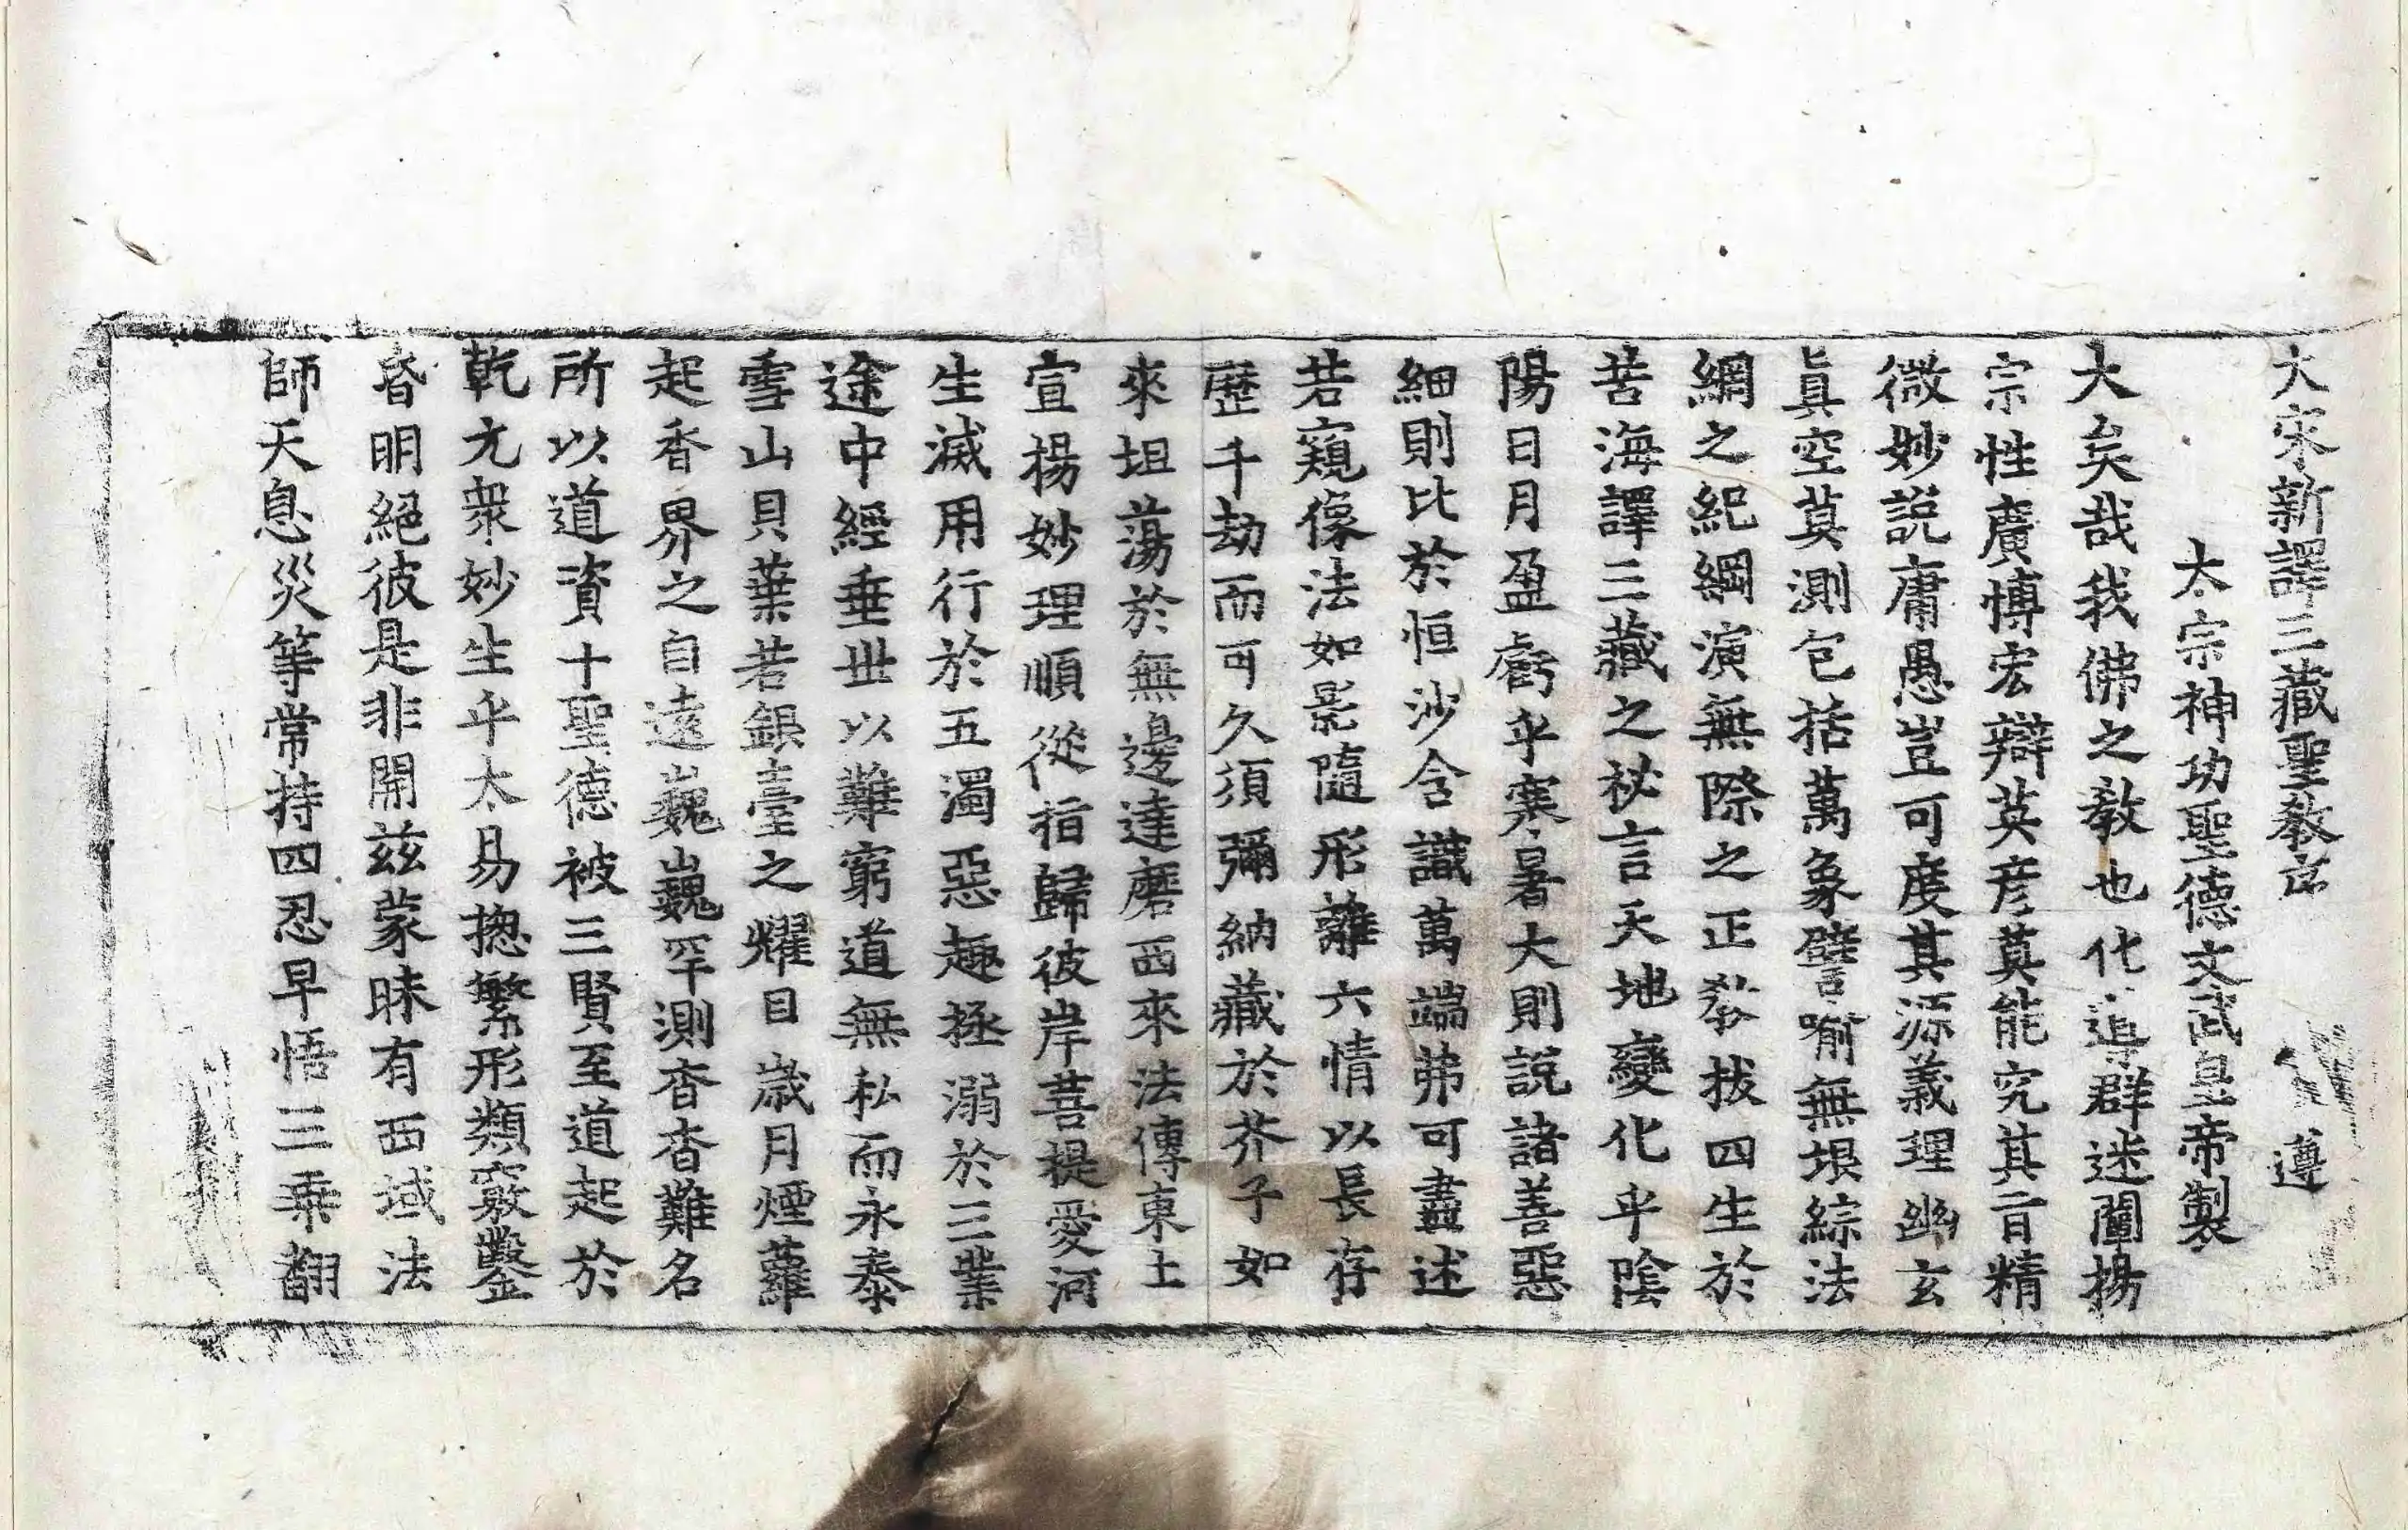 大宋新譯三藏聖教序 遵
太宗神功聖德文武皇帝製
大矣哉我佛之教也化導群迷闡揚
宗性廣博宏辯英彦莫能究其旨精
微妙説庸愚豈可度其源義理幽玄
眞空莫測包括萬象譬喻無垠綜法
網之紀綱演無際之正教拔四生於
苦海譯三藏之秘言天地變化乎陰
陽日月盈虧乎寒暑大則説諸善惡
細則比於恒沙含識萬端弗可盡述
若窺像法如影隨形離六情以長存
歷千劫而可久須彌納藏於芥子如
來坦蕩於無邊達磨西來法傳東土
宣楊妙理順從指歸彼岸菩提愛河
生滅用行於五濁惡趣拯溺於三業
途中經垂世以難窮道無私而永泰
雪山貝葉若銀臺之耀目歲月煙蘿
起香界之自遠巍巍罕測杳杳難名
所以道資十聖德被三賢至道起於
乾元衆妙生乎太易揔繁形類竅鑿
昏明絕彼是非開兹蒙昧有西域法
師天息災等常持四忍早悟三乗翻